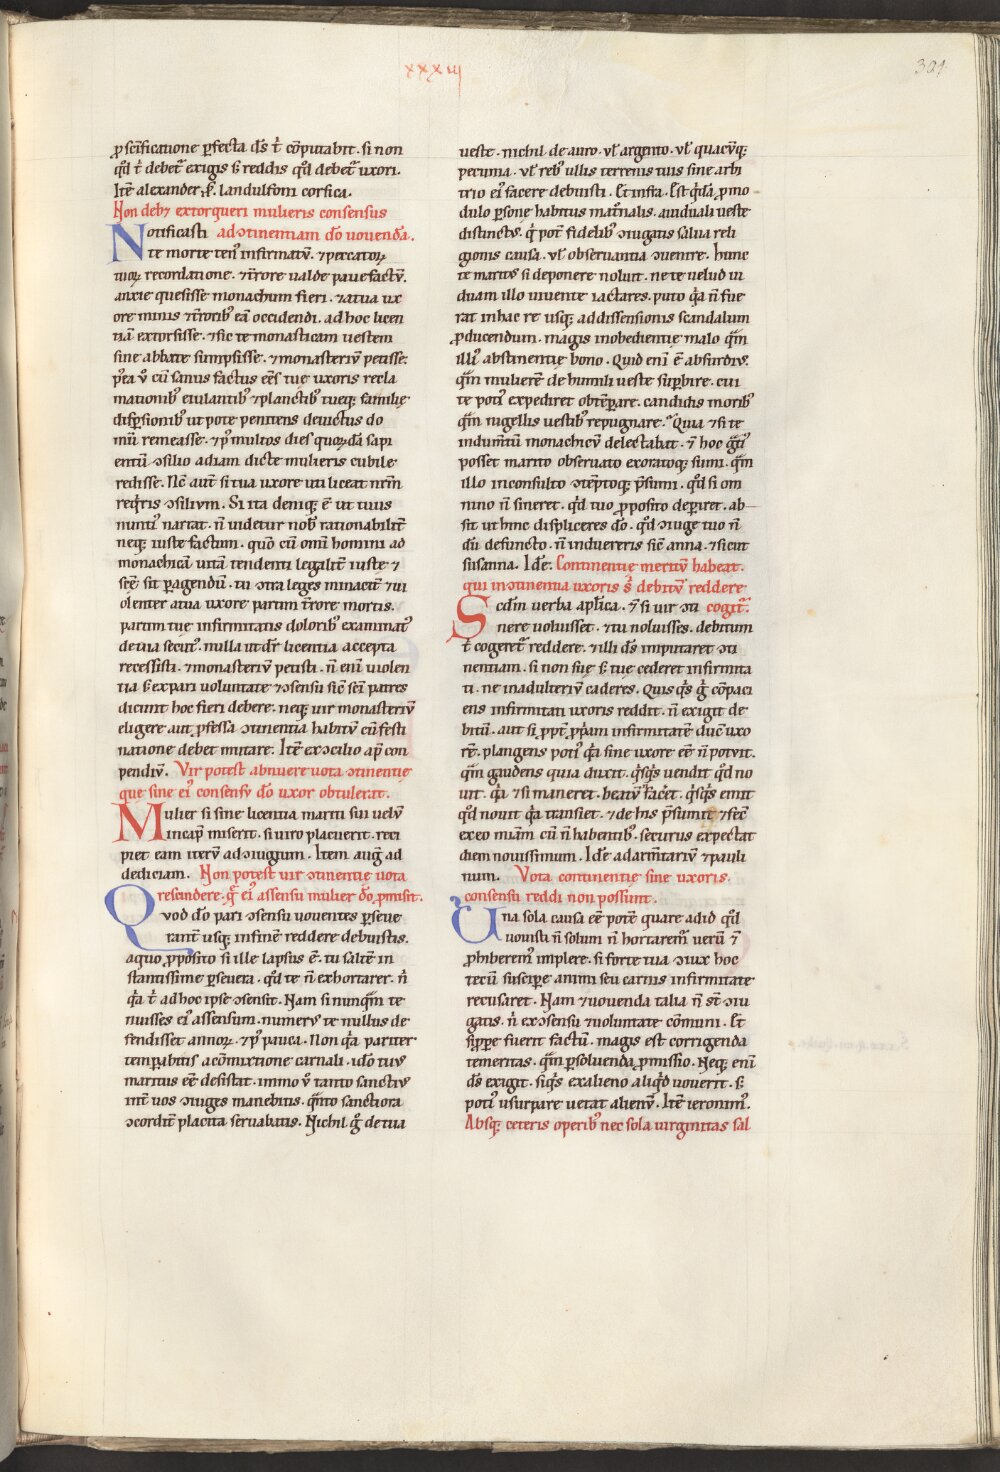 xxxiij
391
ꝓ scĩficatione ꝑfecta d̃s t̃ cõputabit. si non
qd̃ t̃ debet᷑ exigis s̃ reddis qd̃ debet᷑ uxori.
Itẽ alexander .ii. landulfoni corsica.
Non debꝫ extorqueri mulieris consensus
Notificasti ad ɔtinentiam dõ uouenda.
te morte tent᷑ infirmatũ. ⁊ peccator
tuoꝝ recordatione. ⁊ t̃rore ualde pauefactũ.
anxie quesisse monachum fieri. ⁊ a tua ux
ore minis ⁊ t̃roribꝰ eã occidendi. ad hoc licen
tiã extorsisse. ⁊ sic te monasticam uestem
sine abbate sumpsisse. ⁊ monasteriũ petisse.
p̃ea ũ cũ sanus factus eẽs tuę uxoris recla
mationibꝰ eiulantibꝰ ⁊ planctibꝰ tuęqꝫ familię
disp̃sionibꝰ ut pote penitens deuictus do
mũ remeasse. ⁊ p̃ multos dies quorꝝdã sapi
entũ ɔsilio ad iam dicte mulieris cubile
redisse. Nc̃ aut̃ si tua uxore uti liceat nr̃m
req̃ris ɔsilium. Si ita deniqꝫ ẽ ut tuus
nuntiꝰ narrat. ñ uidetur nobꝰ rationabilit̃
neqꝫ iuste factum. quõ cũ omĩ homini ad
monachicã uitã tendenti legalit̃ iuste ⁊
sc̃e sit ꝑagendũ. tu ɔtra leges minacit̃ ⁊ ui
olenter a tua uxore partim t̃rore mortis.
partim tue infirmitatis doloribꝰ examinat᷑
de tua secur᷑. nulla ut dr̃ licentia accepta
recessisti. ⁊ monasteriũ petisti. ñ enĩ uiolen
tia s̃ ex pari uoluntate ⁊ ɔsensu sic̃ sc̃i patres
dicunt hoc fieri debere. neqꝫ uir monasteriũ
eligere aut ꝓfessa ɔtinentia habitũ cũ festi
natione debet mutare. Itẽ ex ɔcilio ap̃ con
pendiũ. Vir potest abnuere uota ɔtinentię
que sine eiꝰ consensu dõ uxor obtulerit.
Mulier si sine licentia mariti sui uelũ
in cap̃ miserit. si uiro placuerit. reci
piet eam iterũ ad ɔiugium. Item aug̃ ad
dediciam. Non potest uir ɔtinentie uota
rescindere. q̃ eiꝰ assensu mulier dõ ꝓmisit.
Quod dõ pari ɔsensu uouentes ꝑseue
rant̃ usqꝫ in finẽ reddere debuistis.
a quo ꝓposito si ille lapsus ẽ. tu saltẽ in
stantissime ꝑseuera. qd̃ te ñ exhortarer. ñ
q̃a t̃ ad hoc ipse ɔsensit. Nam si nunq̃m te
nuisses eiꝰ assensum. numerꝰ te nullus de
fendisset annoꝝ. ⁊ p̃ pauca. Non q̃a pariter
temꝑabitis a cõmixtione carnali. idõ tuꝰ
maritus eẽ desistat. immo ũ tanto sanctiꝰ
int̃ uos ɔiuges manebitis. q̃nto sanctiora
ɔcordit̃ placita seruabitis. Nichil g̃ de tua
ueste. nichil de auro. ul̃ argento. ul̃ quacũqꝫ
pecunia. ul̃ rebꝰ ullis terrenis tuis sine arbi
trio eiꝰ facere debuisti. Et infra. Est q̃dã ꝓ mo
dulo ꝑsone habitus mat᷑nalis. a uiduali ueste
distinctꝰ. q̃ pot̃ fidelibꝰ ɔiugatis salua reli
gionis causa. ul̃ obseruantia ɔuenire. hunc
te maritꝰ si deponere noluit. ne te uelud ui
duam illo uiuente iactares. puto q̃a ñ fue
rat in hac re usqꝫ ad dissensionis scandalum
ꝑducendum. magis inobedientię malo q̃m
illiꝰ abstinentię bono. Quid enĩ ẽ absurdiꝰ.
q̃m mulierẽ de humili ueste suꝑbire. cui
te potiꝰ expediret obtẽꝑare. candidis moribꝰ
q̃m nigellis uestibꝰ repugnare. Quia ⁊ si te
indumt̃ũ monachicũ delectabat. ⁊ hoc g̃tiꝰ
posset marito obseruato exoratoqꝫ sumi. q̃m
illo inconsulto ɔtẽptoqꝫ p̃sumi. qd̃ si om
nino ñ sineret. q̃d tuo ꝓposito deꝑiret. ab
sit ut hinc displiceres dõ. qd̃ ɔiuge tuo ñ
dũ defuncto. ñ induereris sic̃ anna. ⁊ sicut
susanna. Idẽ. Continentie meritũ habeat.
qui in ɔtinentia uxoris s̃ debitũ reddere
Scdm̃ uerba apl̃ica. ⁊ si uir ɔti cogit᷑.
nere uoluisset. ⁊ tu noluisses. debitum
t̃ cogeret᷑ reddere. ⁊ illi d̃s imputaret ɔti
nentiam. si non suę s̃ tuę cederet infirmita
ti. ne in adulteriũ caderes. Quis q̃s g̃ cõpaci
ens infirmitati uxoris reddit. ñ exigit de
bitũ. aut si ꝓpt̃ ꝓpriam infirmitatẽ duc̃ uxo
rẽ. plangens potiꝰ q̃a sine uxore eẽ ñ potuit.
q̃m gaudens quia duxit. q̃sq̃s uendit qd̃ no
uit. q̃a ⁊ si maneret. beatũ ñ facẽt. q̃sq̃s emit
qd̃ nouit q̃a transiet. ⁊ de his p̃sumit ⁊ fec̃
ex eo mĩam cũ ñ habentibꝰ. securus expectat
diem nouissimum. Idẽ ad armt̃ariũ ⁊ pauli
num. Vota continentie sine uxoris.
consensu reddi non possunt.
Una sola causa eẽ potẽ quare ad id qd̃
uouisti ñ solum ñ hortaremꝰ uerũ ⁊
ꝓhiberemꝰ implere. si forte tua ɔiux hoc
tecũ suscipe animi seu carnis infirmitate
recusaret. Nam ⁊ uouenda talia ñ st̃ ɔiu
gatis. ñ ex ɔsensu ⁊ uoluntate cõmuni. Et
si ꝓpere fuerit factũ. magis est corrigenda
temeritas. q̃m ꝑsoluenda ꝓmissio. Neqꝫ enĩ
d̃s exigit. siq̃s ex alieno aliq̃d uouerit. s̃
potiꝰ usurpare uetat alienũ. Itẽ ieronimꝰ.
Absqꝫ ceteris operibꝰ nec sola uirginitas sal